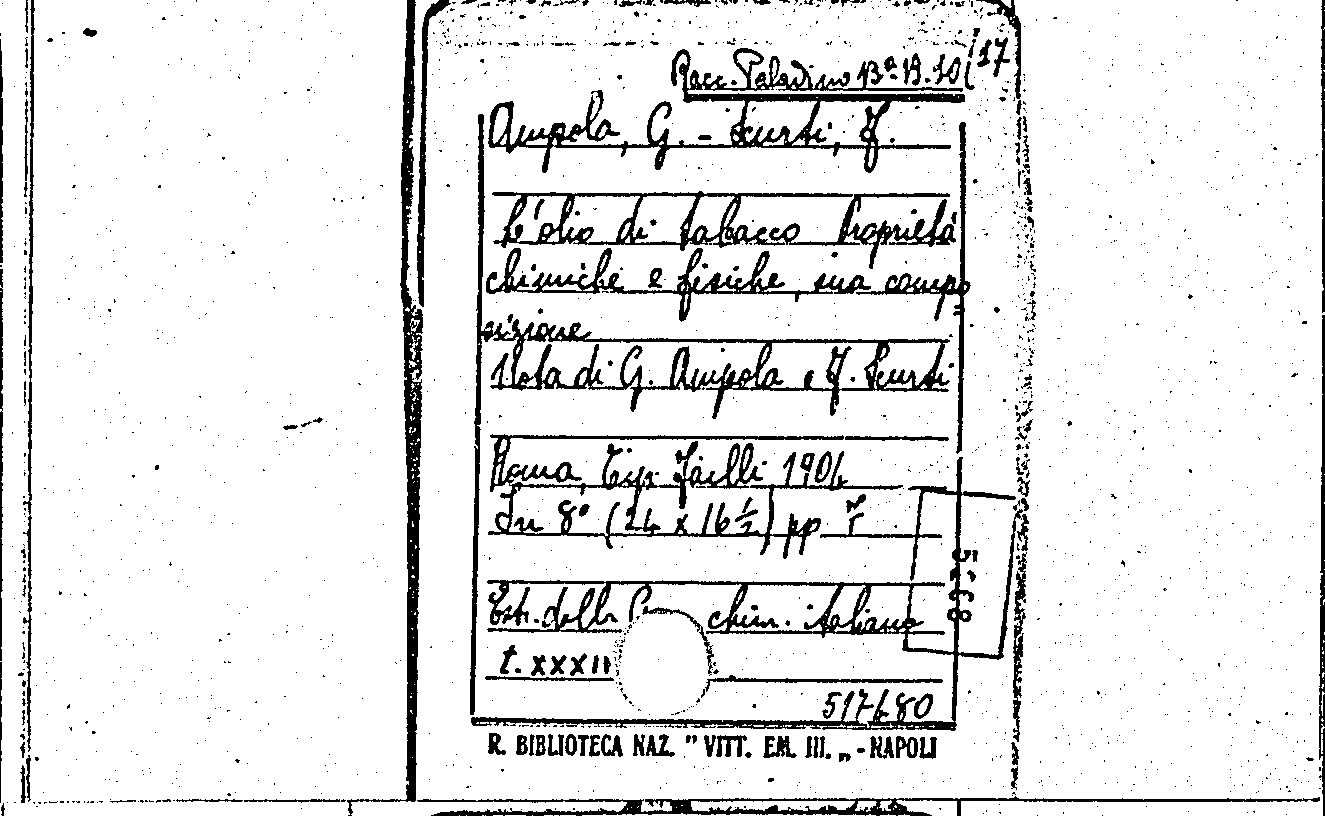 Racc. Paladino B.ª 19.10(17
Ampola, G. - Scurti, F.
L'olio di tabacco Proprietà
chimiche e fisiche, sua compo=
sizione
Nota di G. Ampola e F. Scurti
Roma, Tip. Failli, 1904
In 8° (24 x 16 ½) pp
Estr. dalla chim. italiana
t. XXXII
517680
R. BIBLIOTECA NAZ. " VITT. EM. III. „ - NAPOLI